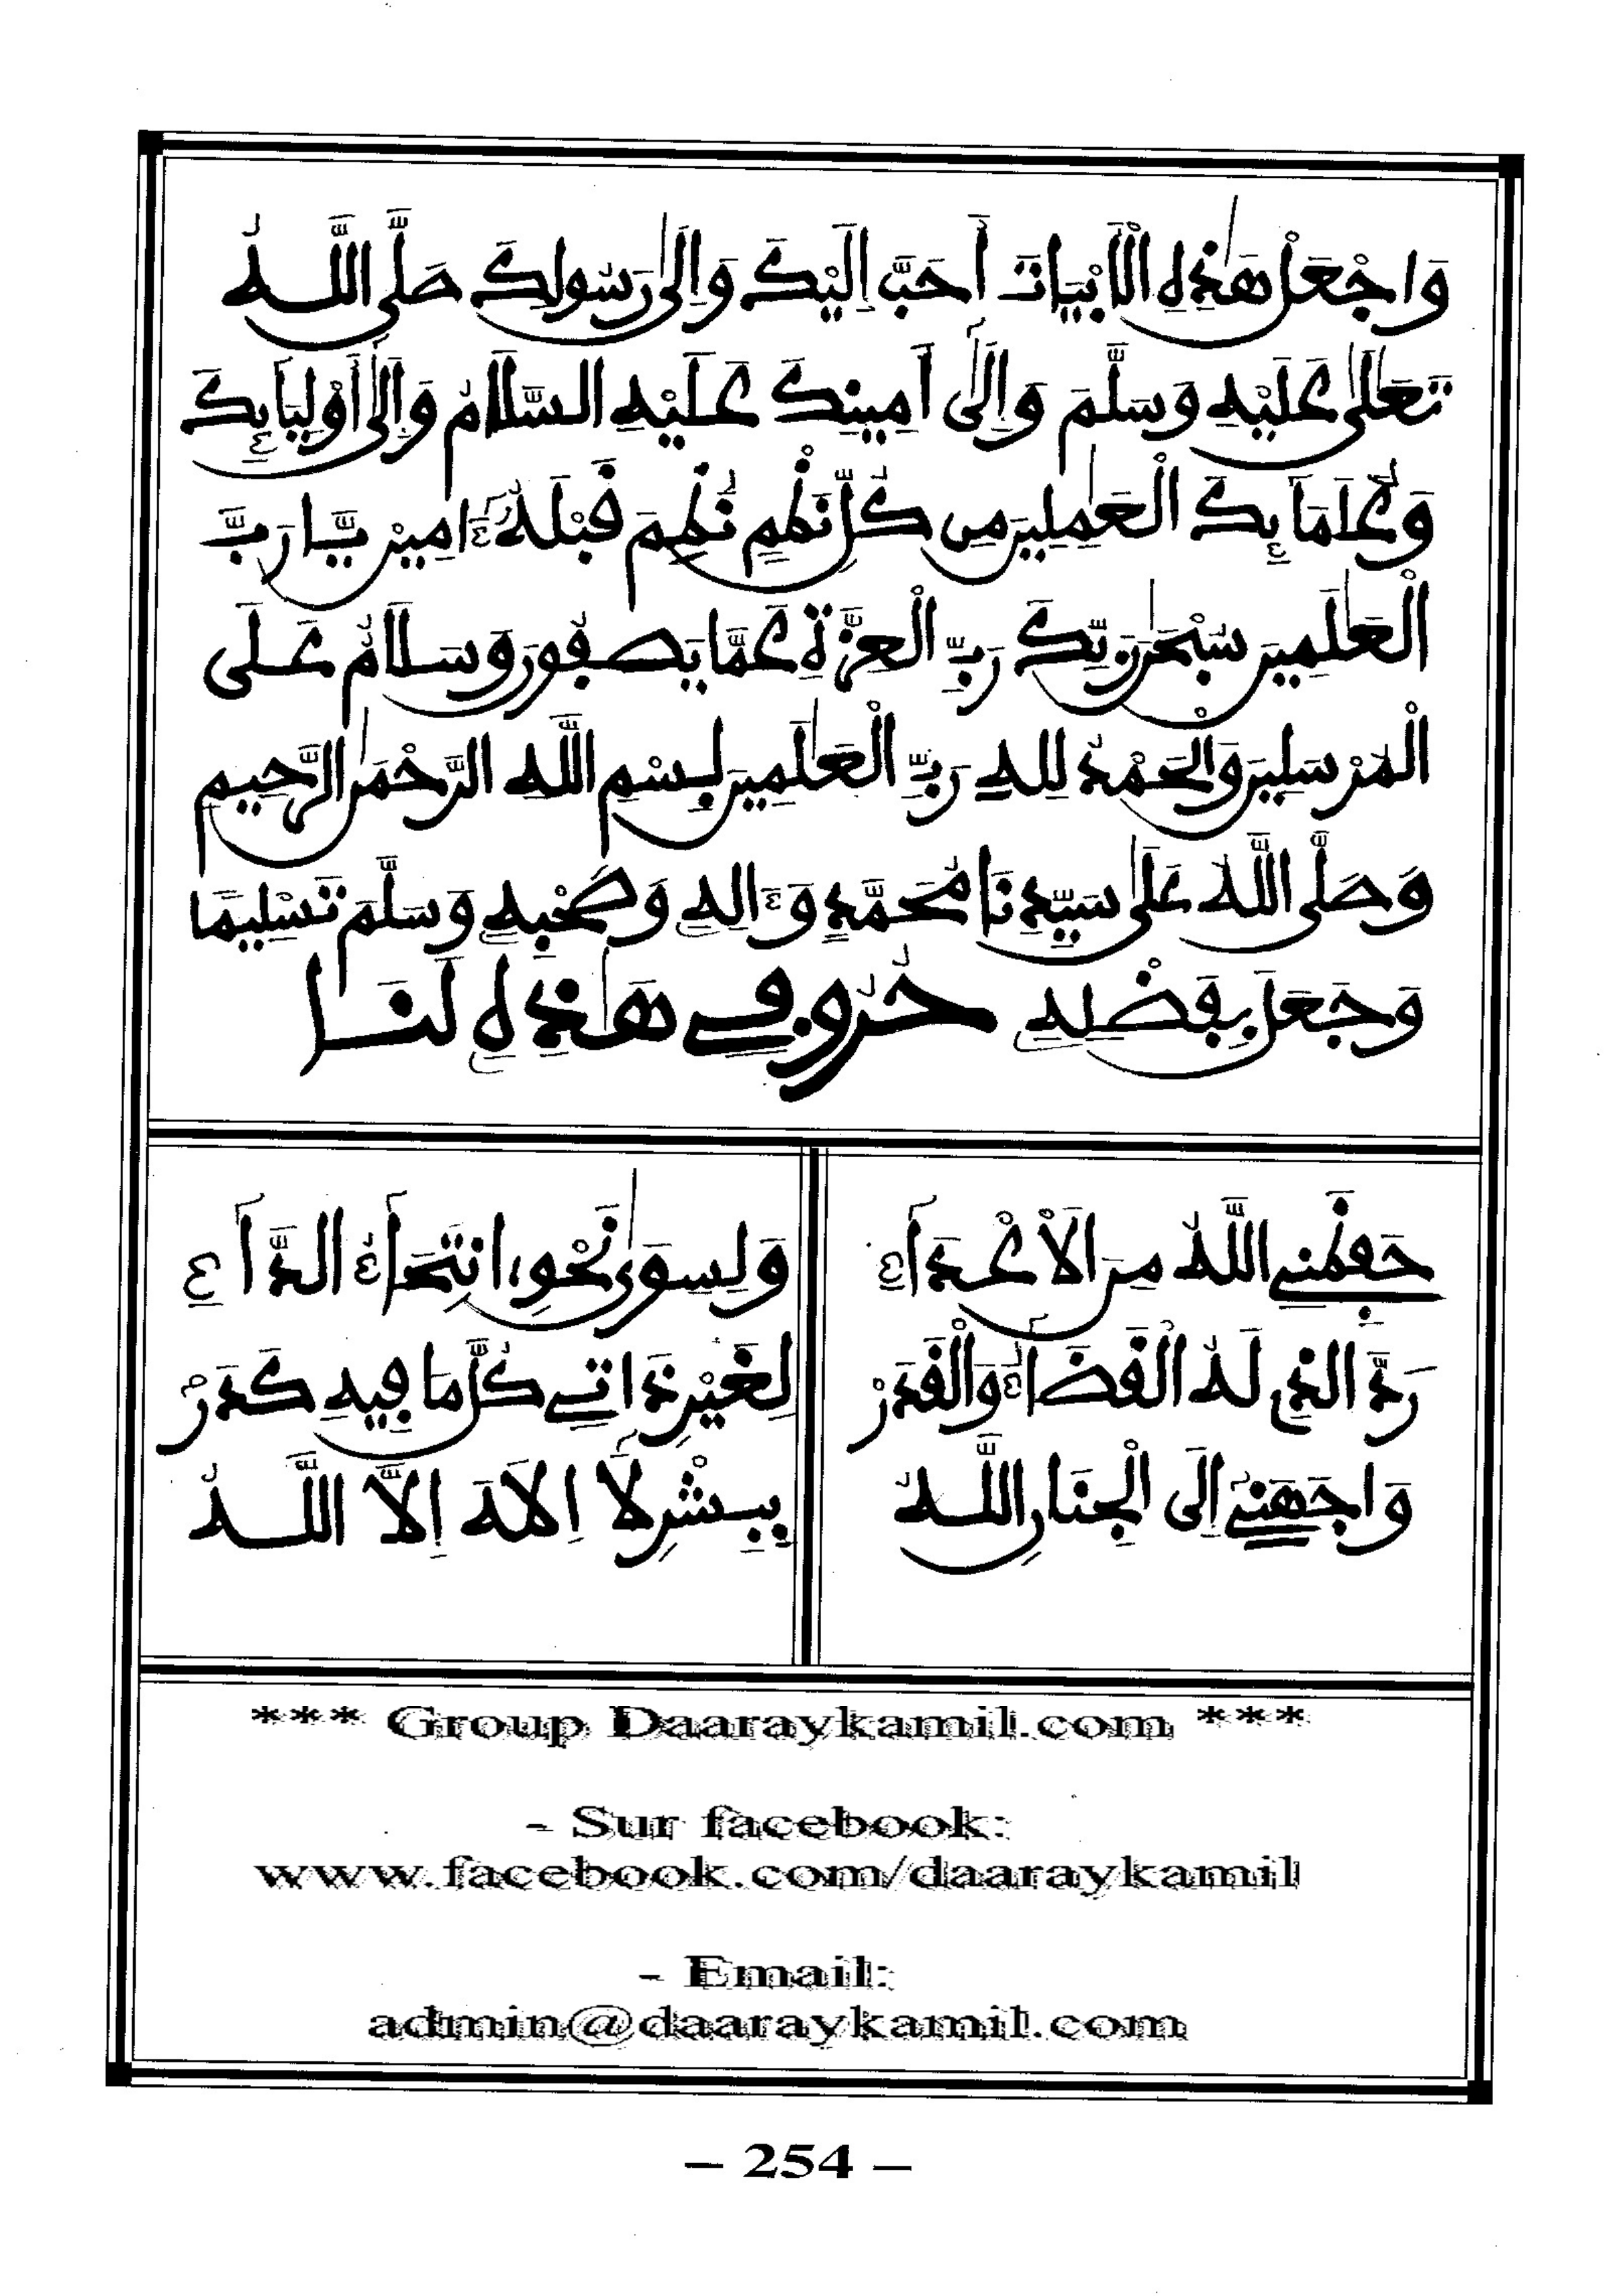 وَاجْعَلْ هَٰذِهِ الْأَبْيَاتَ أَحَبَّ إِلَيْكَ وَإِلَىٰ رَسُولِكَ صَلَّى اللَّهُ
تَعَٰلَىٰ عَلَيْهِ وَسَلَّمَ وَإِلَىٰ أَمِينِكَ عَلَيْهِ السَّلَامُ وَإِلَىٰ أَوْلِيَائِكَ
وَعُلَمَائِكَ الْعَٰمِلِينَ مِن كُلِّ نَظْمٍ نُظِمَ قَبْلَهُ ءَامِينَ يَا رَبَّ
الْعَٰلَمِينَ سُبْحَٰنَ رَبِّكَ رَبِّ الْعِزَّةِ عَمَّا يَصِفُونَ وَسَلَامٌ عَلَى
الْمُرْسَلِينَ وَالْحَمْدُ لِلهِ رَبِّ الْعَٰلَمِينَ بِسْمِ اللَّهِ الرَّحْمَٰنِ الرَّحِيمِ
وَصَلَّى اللَّهُ عَلَىٰ سَيِّدِنَا مُحَمَّدٍ وَءَالِهِ وَصَحْبِهِ وَسَلَّمَ تَسْلِيمًا
وَجَعَلَ بِفَضْلِهِ حُرُوفِي هَٰذِهِ لَنَا
حَفِظَنِي اللَّهُ مِنَ الْأَعْدَاءِ وَلِسِوَٰى نَحْوِي انْتِحَاءُ الدَّاءِ
رَدَّ الذِي لَهُ الْقَضَاءُ وَالْقَدَرْ لِغَيْرِ ذَاتِي كُلَّ مَا فِيهِ كَدَرْ
وَاجَهَنِي إِلَى الْجِنَانِ اللَّهُ بِبِشْرِ لَا إِلَهَ إِلَّا اللَّهُ
*** Group Daaraykamil.com ***
- Sur facebook:
www.facebook.com/daaraykamil
- Email:
admin@daaraykamil.com
– 254 –